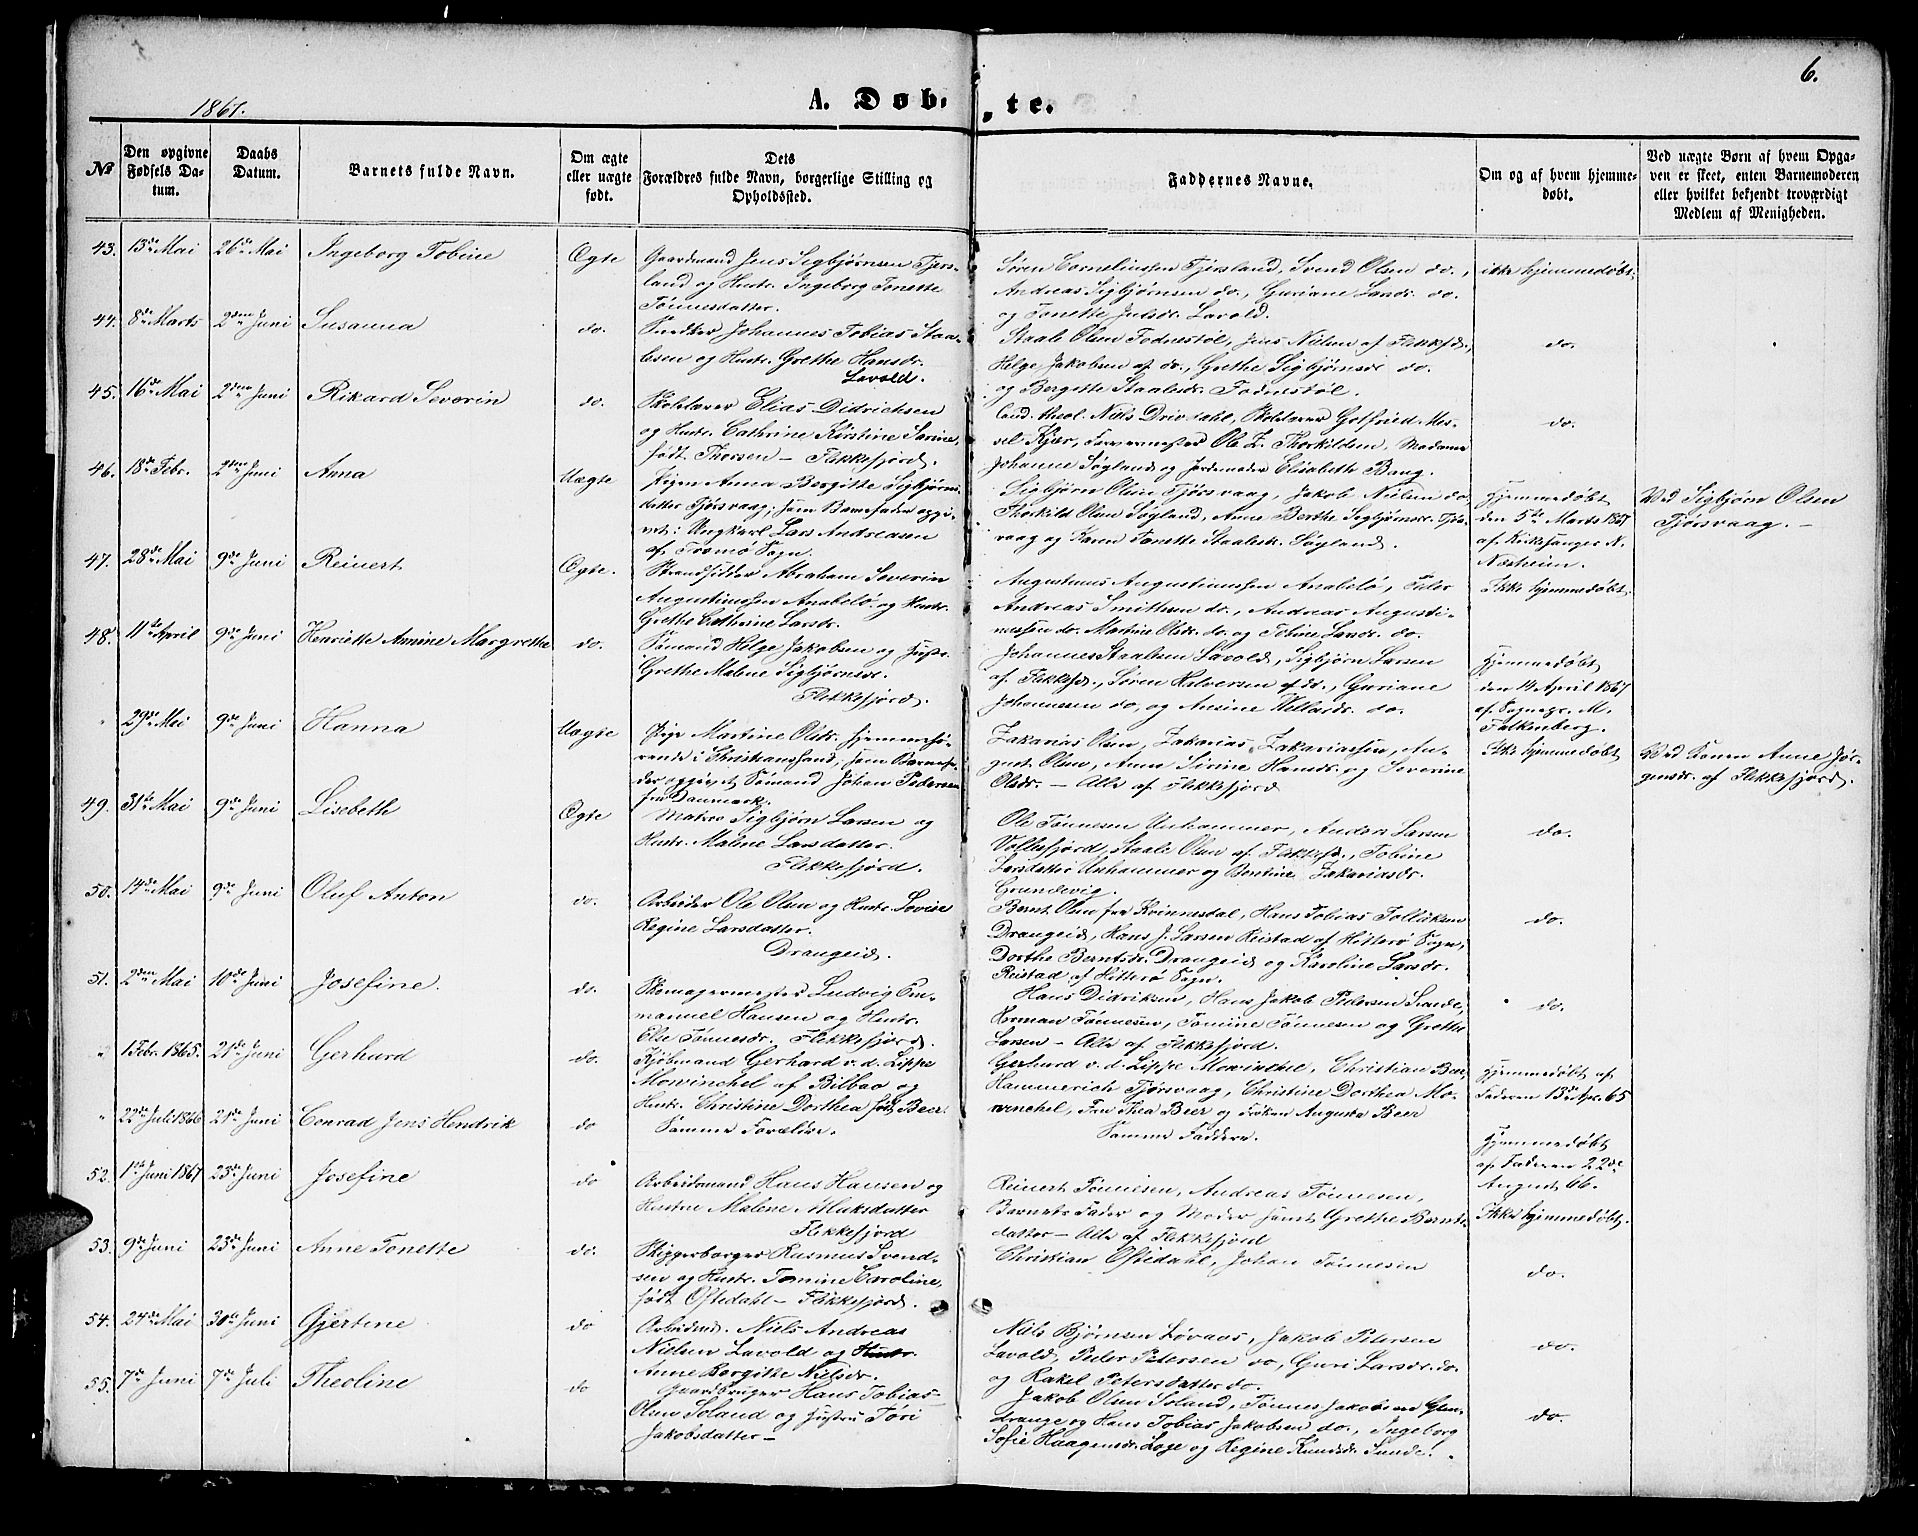 6.
1867.
A. Døb- te.
No
Den opgivne Fødsels Datum.
Daabs Datum.
Barnets fulde Navn.
Om ægte eller uægte født.
Dets Forældres fulde Navn, borgerlige Stilling og Opholdssted.
Faddernes Navne.
Om og af hvem hjemmedøbt.
Ved uægte Børn af hvem Opgaven er skeet, enten Barnemoderen eller hvilket bekjendt troværdigt Medlem af Menigheden.
43. 13de Mai 26de Mai Ingeborg Tobine Ægte
Gaardmand Jens Sigbjørnsen Tjørsland og Hustr. Ingeborg Tonette Tønnesdatter.
Søren Corneliussen Tjørsland, Svend Olsen do.,
Andreas Sigbjørnsen do., Guriane Larsdr. do.
og Tonette Julsdr. Lavold.
ikke hjemmedøbt.
44. 8de Marts 2den Juni Susanna do.
Snedker Johannes Tobias Staalesen og Hustr. Grethe Hansdr.
Lavold.
Staale Olsen Fodnestøl, Jens Nilsen af Flekkefjd.,
Helge Jakobsen af do., Grethe Sigbjørnsdr do.
og Bergitte Staalesdr. Fodnestøl.
do.
45. 16de Mai 2den Juni Rikard Severin do.
Skolelærer Elias Didrichsen
og Hustr. Cathrine Kirstine Sørine,
født Thorsen – Flekkefjord.
Cand. theol. Niels Drivdahl, Skolelærer Gotfried
Kjær, Farvermester Ole Z. Thorkildsen, Madame
Johanne Søgland og Jordemoder Elisabeth Bang.
do.
46. 18de Febr. 2den Juni Anna Uægte
Pigen Anna Bergitte Sigbjørnsdatter Tjørsvaag; som Barnefader opgivet: Ungkarl Lars Andreasen
af Fosmø Sogn.
Sigbjørn Olsen Tjørsvaag, Jakob Nielsen do
Thorkild Olsen Søgland, Anne Berthe Sigbjørnsdr. Tjørsvaag og Karen Tonette Staalesdr. Søgland.
Hjemmedøbt
den 5te Marts 1867
af Kirkesanger N.
Næsheim.
Ved Sigbjørn Olsen
Tjørsvaag. –
47. 28de Mai 9de Juni Reinert Ægte.
Strandsidder Abraham Severin
Augustinussen Anabelø og Hustr.
Grethe Cathrine Larsdr.
Augustinus Augustinussen Anabelø, Peder
Andreas Smithsen do., Andreas Augustinussen do. Martine Olsdr. do. og Tobine Larsdr. do.
Ikke hjemmedøbt.
48. 11te April 9de Juni Henriette Amine Margrethe do.
Sømand Helge Jakobsen og Hustr.
Grethe Malene Sigbjørnsdr.
Flekkefjord.
Johannes Staalesen Lavold, Sigbjørn Larsen
af Flekkefjd., Søren Halversen af do., Guriane
Johannessen do, og Ansine Willardr. do.
Hjemmedøbt
den 14 April 1867
af Sognepr. M.
Falkenberg.
" 29de Mai 9de Juni Hanna Uægte
Pige Martine Olsdr. hjemmehørende i Christianssand, som Barnefader opgivet Sømand Johan Pedersen
fra Danmark.
Zakarias Olsen, Zakarias Zakariassen, August Olsen, Anne Sirine Hansdr. og Severine
Olsdr. – Alle af Flekkefjord
Ikke hjemmedøbt
Ved Konen Anne Jørgensdr. af Flekkefjord.
49. 31te Mai 9de Juni Lisebeth Ægte
Matros Sigbjørn Larsen og
Hustr. Malene Larsdatter.
Flekkefjord.
Ole Tønnesen Unhammer, Anders Larsen
Vollesfjord, Staale Olsen af Flekkefjd., Tobine
Larsdatter Unhammer og Bentine Zakariasdr.
Grundevig.
do.
50. 14de Mai 9de Juni Oluf Anton do.
Arbeider Ole Olsen og Hustr. Lovise
Regine Larsdatter.
Drangeid.
Bernt Olsen fra Kvinnesdal, Hans Tobias Tolliksen
Drangeid, Hans J. Larsen Reistad af Hitterø Sogn,
Dorthe Berntsdr. Drangeid og Karoline Larsdr.
Reistad af Hitterø Sogn.
do.
51. 2den Mai 10de Juni Josefine. do.
Skomagermester Ludvig Emmanuel Hansen og Hustr.
Else Tønnesdr. Flekkefjord.
Hans Didriksen, Hans Jakob Pedersen Lunde,
Herman Tønnesen, Tomine Tønnesen og Grethe
Larsen – Alle af Flekkefjord.
do.
" 1 Febr. 1865. 21de Juni Gerhard do.
Kjøbmand Gerhard v. d. Lippe
Mowinchel af Bilbao og
Hustr. Christine Dorthea født Beer.
Gerhard v. d. Lippe Mowinchel, Christian Beer,
Hammerich Tjørsvaag, Christine Dorthea Mowinchel, Fru Thea Beer og Frøken Augusta Beer
Hjemmedøbt af
Faderen 13de Apr. 65
" 22de Juli 1866 21de Juni Conrad Jens Hendrik do
Samme Forældre.
Samme Faddere.
Hjemmedøbt
af Faderen 22de
August 66.
52. 1ste Juni 1867 23de Juni Josefine do
Arbeidsmand Hans Hansen og
Hustru Malene Aslaksdatter
Flekkefjord
Reinert Tønnesen, Andreas Tønnesen,
Barnets Fader og Moder samt Grethe Berntsdatter – Alle af Flekkefjord
Ikke hjemmedøbt.
53. 9de Juni 23de Juni Anne Tonette do.
Skipperborger Rasmus Svendsen og Hustr. Tomine Caroline,
født Oftedahl – Flekkefjord.
Christian Oftedahl, Johan Tønnesen
do.
54. 24de Mai 30te Juni Gjertine do
Arbeidsmd. Niels Andreas
Nielsen Lavold og Hustr.
Anne Bergitte Nielsdr.
Niels Bjørnsen Løvaas, Jakob Petersen
Lavold, Peder Petersen do, Guri Larsdr. do.
og Rakel Petersdatter do.
do.
55. 7de Juni 7de Juli Theoline do
Gaardbruger Hans Tobias
Olsen Soland og Hustru Tøri
Jakobsdatter –
Jakob Olsen Soland, Tønnes Jakobsen Glendrange og Hans Tobias Jakobsen do., Ingeborg
Sofie Haagensdr. Loge og Regine Knudsdr. Sunde.
do.